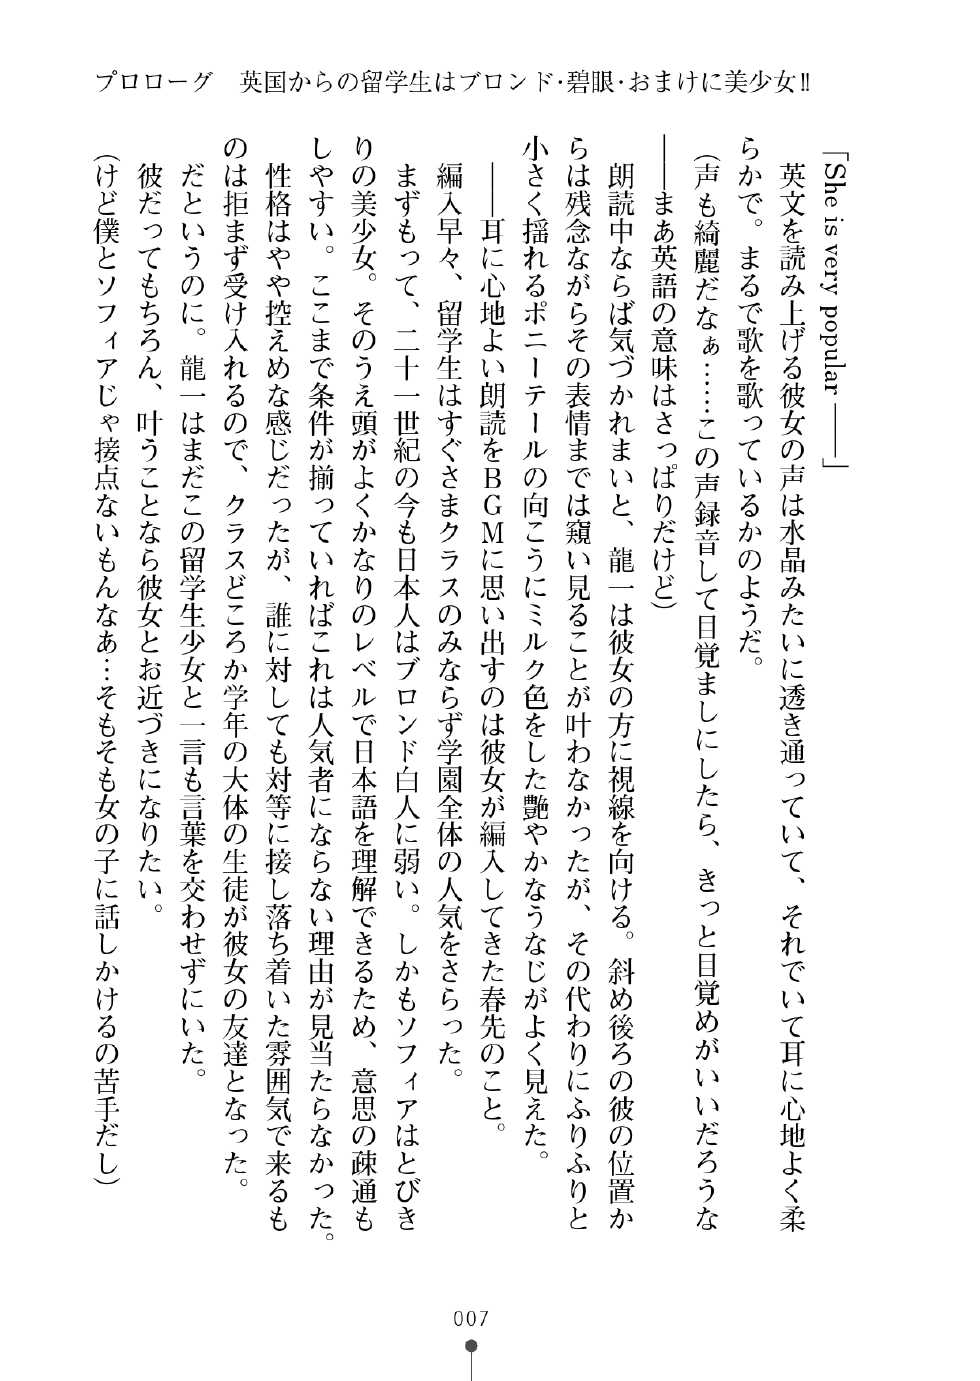 プロローグ　英国からの留学生はブロンド・碧眼・おまけに美少女!!
「She is very popular ――」
　英文を読み上げる彼女の声は水晶みたいに透き通っていて、それでいて耳に心地よく柔
らかで。まるで歌を歌っているかのようだ。
（声も綺麗だなぁ……この声録音して目覚ましにしたら、きっと目覚めがいいだろうな
――まあ英語の意味はさっぱりだけど）
　朗読中ならば気づかれまいと、龍一は彼女の方に視線を向ける。斜め後ろの彼の位置か
らは残念ながらその表情までは窺い見ることが叶わなかったが、その代わりにふりふりと
小さく揺れるポニーテールの向こうにミルク色をした艶やかなうなじがよく見えた。
　――耳に心地よい朗読をＢＧＭに思い出すのは彼女が編入してきた春先のこと。
　編入早々、留学生はすぐさまクラスのみならず学園全体の人気をさらった。
　まずもって、二十一世紀の今も日本人はブロンド白人に弱い。しかもソフィアはとびき
りの美少女。そのうえ頭がよくかなりのレベルで日本語を理解できるため、意思の疎通も
しやすい。ここまで条件が揃っていればこれは人気者にならない理由が見当たらなかった。
　性格はやや控えめな感じだったが、誰に対しても対等に接し落ち着いた雰囲気で来るも
のは拒まず受け入れるので、クラスどころか学年の大体の生徒が彼女の友達となった。
　だというのに。龍一はまだこの留学生少女と一言も言葉を交わせずにいた。
　彼だってもちろん、叶うことなら彼女とお近づきになりたい。
（けど僕とソフィアじゃ接点ないもんなあ…そもそも女の子に話しかけるの苦手だし）
007